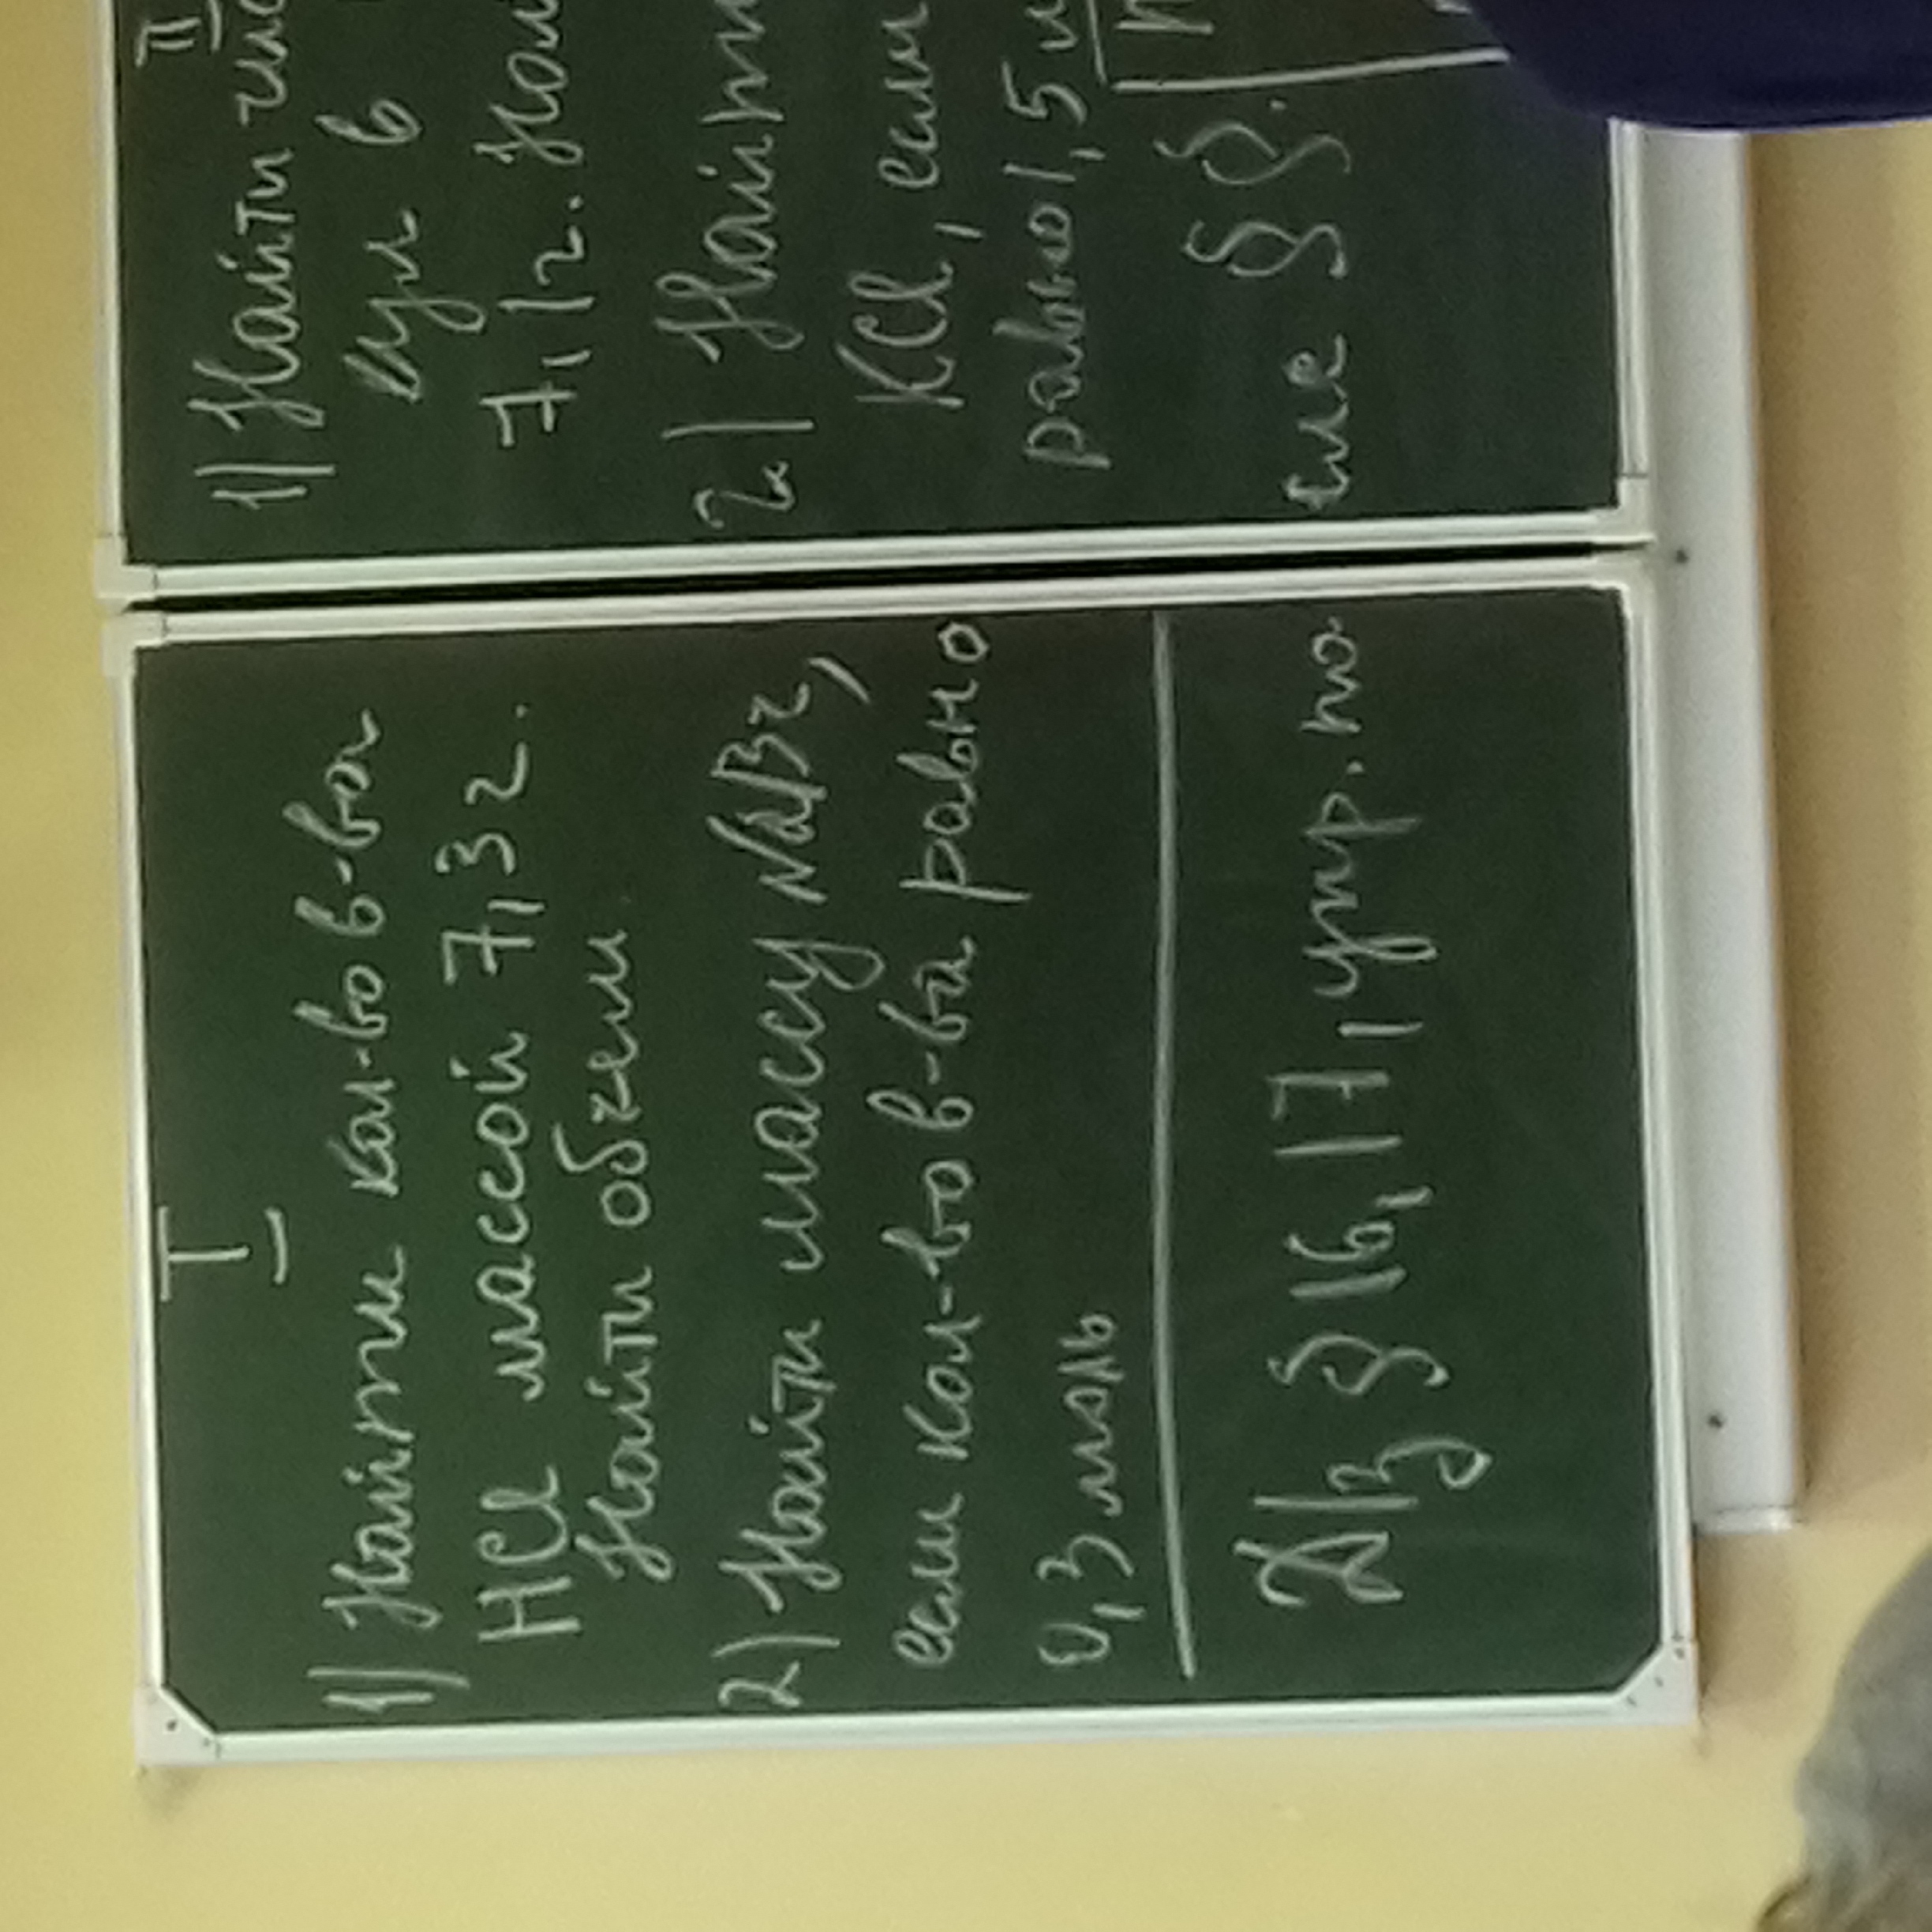 I
1) Найти кол-во в-ва
HCl массой 7,3 г.
Найти объем
2) Найти массу NaBr,
если кол-во в-ва равно
0,3 моль
Д/з § 16, 17, упр. по-
II
1) Найти чис
кул в
7,1 г. Най
2) Найти
KCl, если
равно 1,5 м
сле §§.